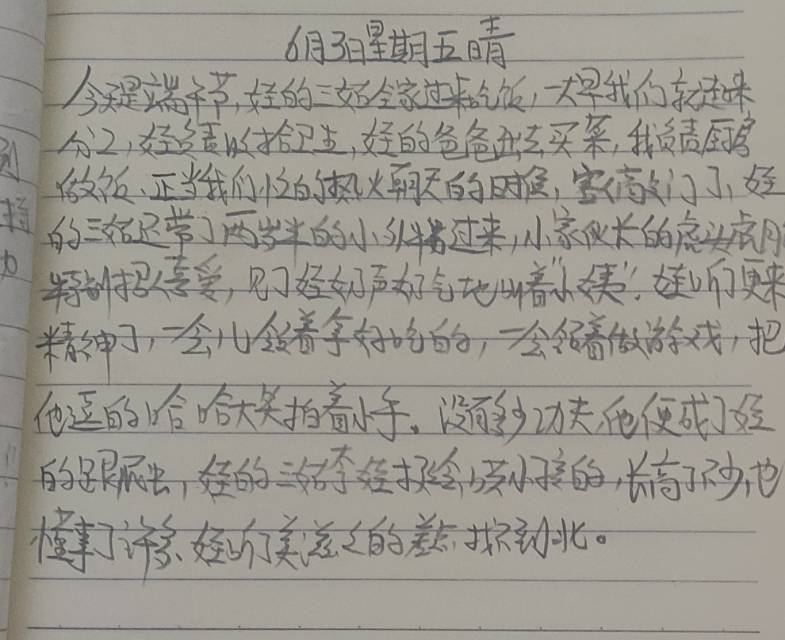 6月3日星期五晴
今天是端午节,娃的三姑全家过来吃饭,一大早我们就起床
分工,娃负责收拾卫生,娃的爸爸出去买菜,我负责厨房
做饭、正当我们忙的热火朝天的时候,客人敲门了、娃
的三姑还带了两岁半的小外甥过来,小家伙长的虎头虎脑
特别招人喜爱,见了娃奶声奶气地叫着"小姨",娃听了更来
精神了,一会儿领着拿好吃的,一会领着做游戏,把
他逗的哈哈大笑拍着小手。没有多少功夫,他便成了娃
的跟屁虫,娃的三姑夸娃挺会哄小孩的,长高了不少,也
懂事了许多、娃听了美滋滋的差点找不到北。
到